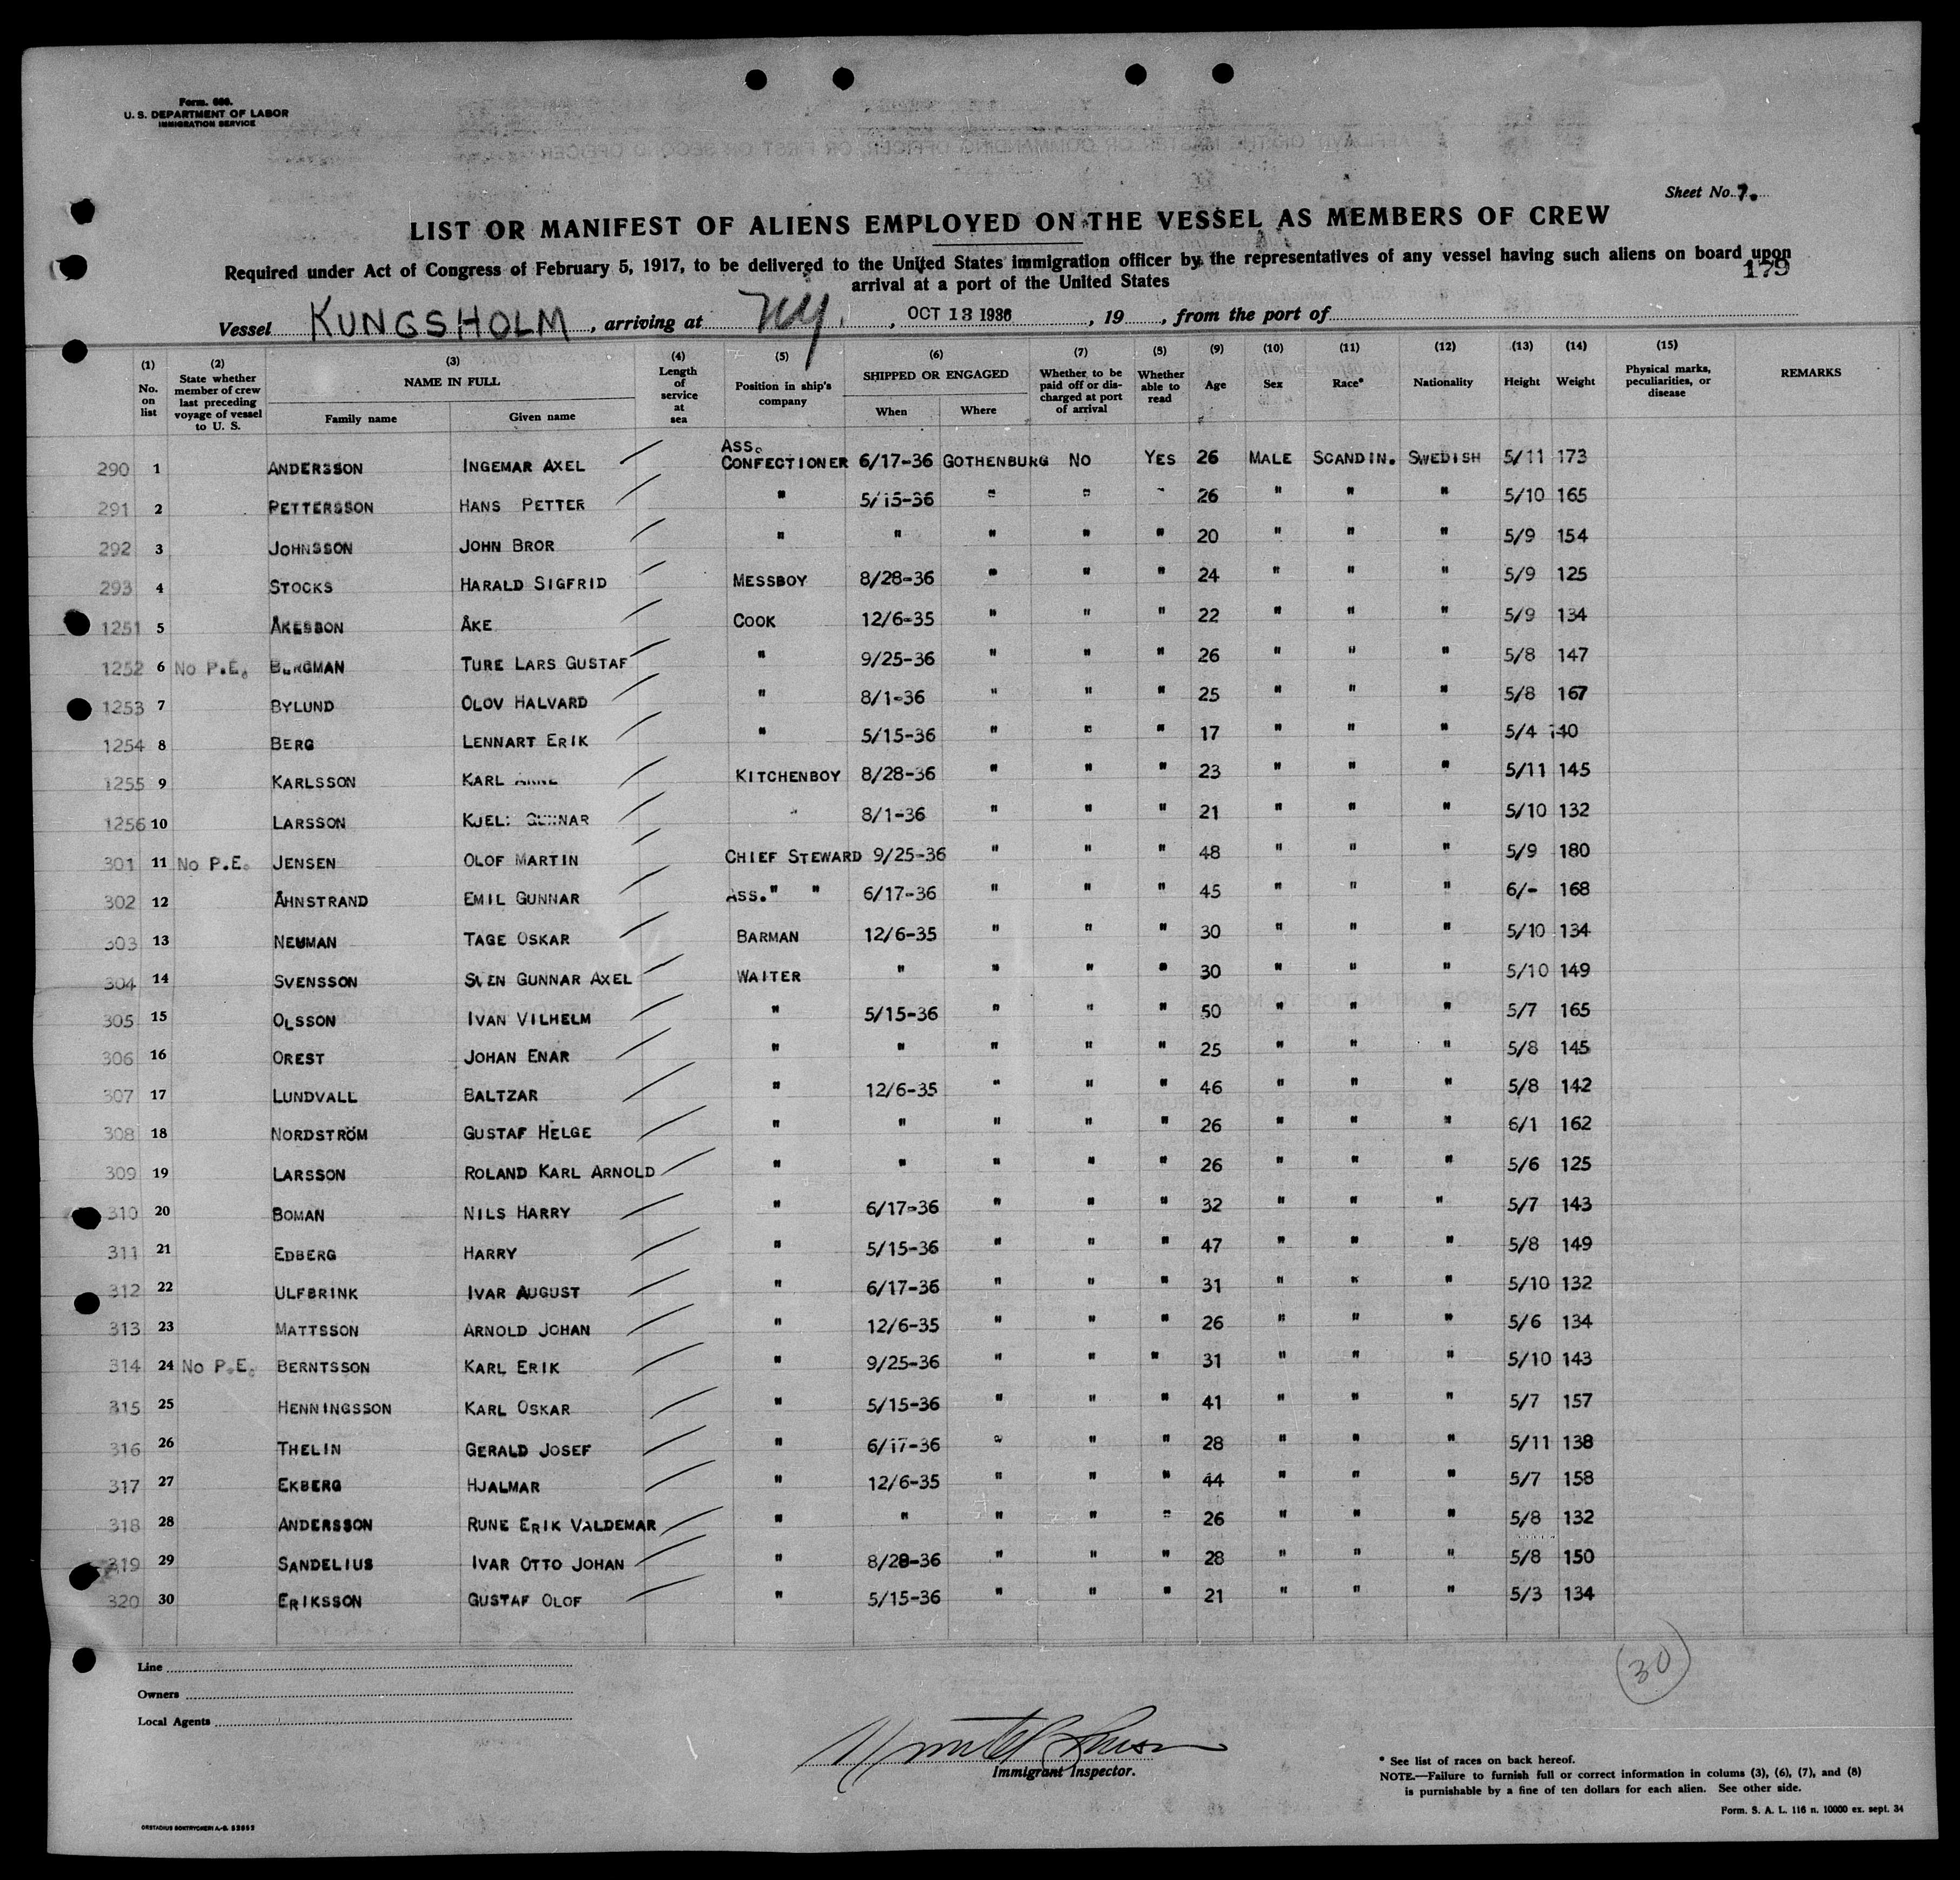 Form. 680.
U. S. DEPARTMENT OF LABOR
IMMIGRATION SERVICE
Sheet No. 7.
LIST OR MANIFEST OF ALIENS EMPLOYED ON THE VESSEL AS MEMBERS OF CREW
Required under Act of Congress of February 5, 1917, to be delivered to the United States immigration officer by the representatives of any vessel having such aliens on board upon
arrival at a port of the United States
179
Vessel KUNGSHOLM, arriving at NY., OCT 13 1936, 19, from the port of
(1) No. on list (2) State whether member of crew last preceding voyage of vessel to U. S. (3) NAME IN FULL Family name Given name (4) Length of service at sea (5) Position in ship's company (6) SHIPPED OR ENGAGED When Where (7) Whether to be paid off or discharged at port of arrival (8) Whether able to read (9) Age (10) Sex (11) Race* (12) Nationality (13) Height (14) Weight (15) Physical marks, peculiarities, or disease REMARKS
290 1 ANDERSSON INGEMAR AXEL ASS. CONFECTIONER 6/17-36 GOTHENBURG NO YES 26 MALE SCANDIN. SWEDISH 5/11 173
291 2 PETTERSSON HANS PETTER " 5/15-36 " " " 26 " " " 5/10 165
292 3 JOHNSSON JOHN BROR " " " " " 20 " " " 5/9 154
293 4 STOCKS HARALD SIGFRID MESSBOY 8/28-36 " " " 24 " " " 5/9 125
1251 5 ÅKESSON ÅKE COOK 12/6-35 " " " 22 " " " 5/9 134
1252 6 No P.E. BERGMAN TURE LARS GUSTAF " 9/25-36 " " " 26 " " " 5/8 147
1253 7 BYLUND OLOV HALVARD " 8/1-36 " " " 25 " " " 5/8 167
1254 8 BERG LENNART ERIK " 5/15-36 " " " 17 " " " 5/4 140
1255 9 KARLSSON KARL ARNE KITCHENBOY 8/28-36 " " " 23 " " " 5/11 145
1256 10 LARSSON KJELL GUNNAR " 8/1-36 " " " 21 " " " 5/10 132
301 11 No P.E. JENSEN OLOF MARTIN CHIEF STEWARD 9/25-36 " " " 48 " " " 5/9 180
302 12 ÅHNSTRAND EMIL GUNNAR ASS. " " 6/17-36 " " " 45 " " " 6/- 168
303 13 NEUMAN TAGE OSKAR BARMAN 12/6-35 " " " 30 " " " 5/10 134
304 14 SVENSSON SVEN GUNNAR AXEL WAITER " " " " 30 " " " 5/10 149
305 15 OLSSON IVAN VILHELM " 5/15-36 " " " 50 " " " 5/7 165
306 16 OREST JOHAN ENAR " " " " " 25 " " " 5/8 145
307 17 LUNDVALL BALTZAR " 12/6-35 " " " 46 " " " 5/8 142
308 18 NORDSTRÖM GUSTAF HELGE " " " " " 26 " " " 6/1 162
309 19 LARSSON ROLAND KARL ARNOLD " " " " " 26 " " " 5/6 125
310 20 BOMAN NILS HARRY " 6/17-36 " " " 32 " " " 5/7 143
311 21 EDBERG HARRY " 5/15-36 " " " 47 " " " 5/8 149
312 22 ULFBRINK IVAR AUGUST " 6/17-36 " " " 31 " " " 5/10 132
313 23 MATTSSON ARNOLD JOHAN " 12/6-35 " " " 26 " " " 5/6 134
314 24 No P.E. BERNTSSON KARL ERIK " 9/25-36 " " " 31 " " " 5/10 143
315 25 HENNINGSSON KARL OSKAR " 5/15-36 " " " 41 " " " 5/7 157
316 26 THELIN GERALD JOSEF " 6/17-36 " " " 28 " " " 5/11 138
317 27 EKBERG HJALMAR " 12/6-35 " " " 44 " " " 5/7 158
318 28 ANDERSSON RUNE ERIK VALDEMAR " " " " " 26 " " " 5/8 132
319 29 SANDELIUS IVAR OTTO JOHAN " 8/28-36 " " " 28 " " " 5/8 150
320 30 ERIKSSON GUSTAF OLOF " 5/15-36 " " " 21 " " " 5/3 134
30
Line
Owners
Local Agents
Immigrant Inspector.
* See list of races on back hereof.
NOTE.—Failure to furnish full or correct information in colums (3), (6), (7), and (8)
is purnishable by a fine of ten dollars for each alien. See other side.
Form. S. A. L. 116 n. 10000 ex. sept. 34